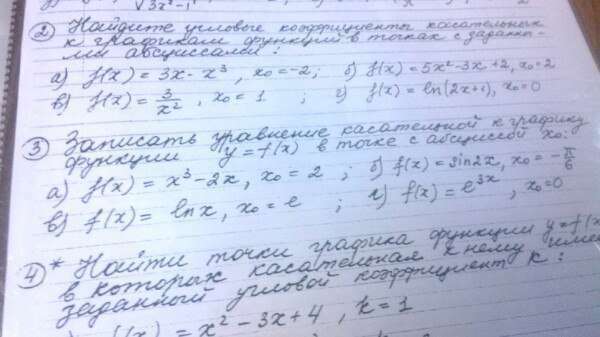 √3x²-1
② Найдите угловые коэффициенты касательных
к графикам функций в точках с заданны-
ми абсциссами:
а) f(x) = 3x - x³, x₀ = -2; б) f(x) = 5x² - 3x + 2, x₀ = 2
в) f(x) = 3/x², x₀ = 1; г) f(x) = ln(2x+1), x₀ = 0
③ Записать уравнение касательной к графику
функции y = f(x) в точке с абсциссой x₀:
а) f(x) = x³ - 2x, x₀ = 2; б) f(x) = sin2x, x₀ = -π/6
в) f(x) = lnx, x₀ = e; г) f(x) = e³ˣ, x₀ = 0
④* Найти точки графика функции y = f(x
в которых касательная к нему име
заданный угловой коэффициент к:
f(x) = x² - 3x + 4, k = 1